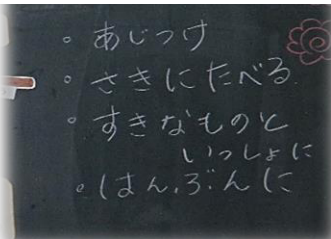 。あじつけ
。さきにたべる
。すきなものと
いっしょに
。はんぶんに